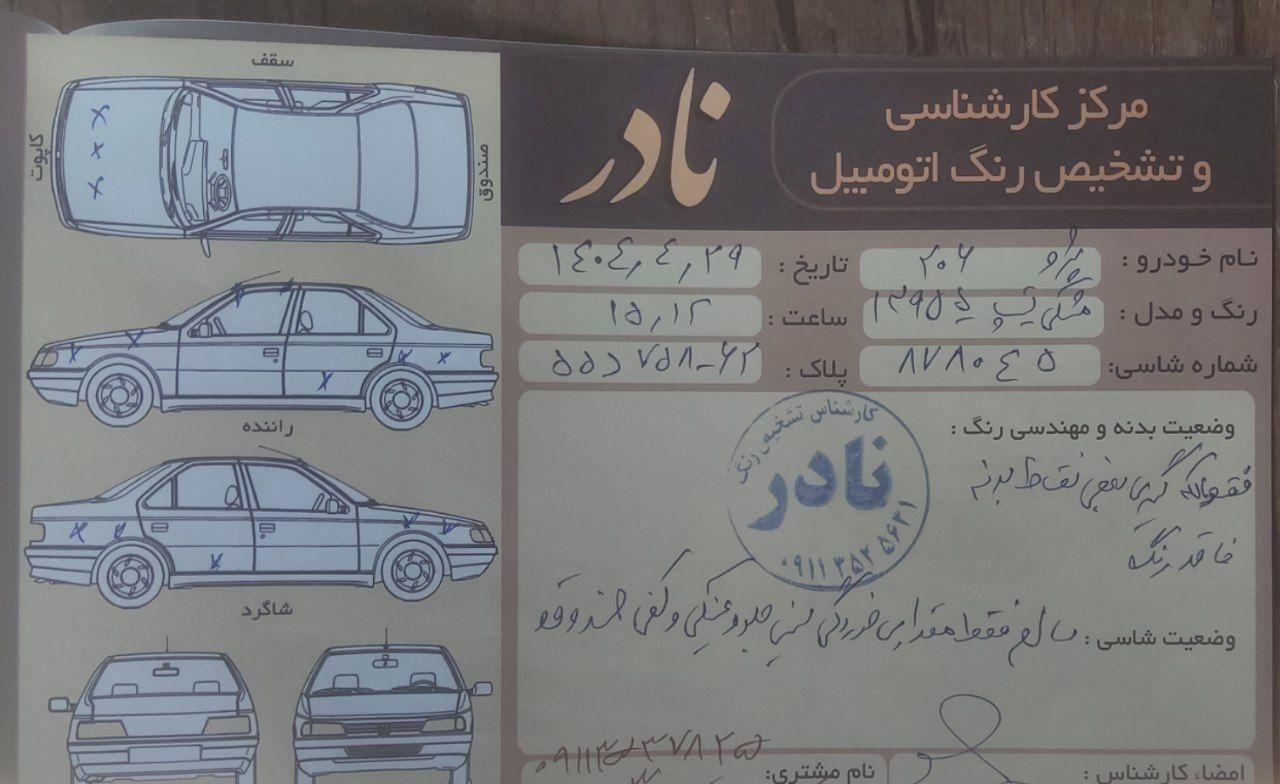 مرکز کارشناسی
و تشخیص رنگ اتومبیل
نادر
نام خودرو : پژو ۲۰۶
تاریخ : ۱۴۰۴/۴/۲۹
رنگ و مدل : مشکی تیپ ۵ ۱۳۹۵
ساعت : ۱۵/۱۲
شماره شاسی: ۸۷۸۰۴۵
پلاک : ۵۵د۷۵۸-۶۲
وضعیت بدنه و مهندسی رنگ :
فقط لکه گیری بعضی نقاط بدنه
فاقد رنگ
وضعیت شاسی : سالم فقط مقداری خوردگی سینی جلو و کفی صندوق
کارشناس تشخیص رنگ
نادر
۰۹۱۱۳۵۲۵۶۳۱
امضاء کارشناس :
نام مشتری:
سقف
کاپوت
صندوق
راننده
شاگرد